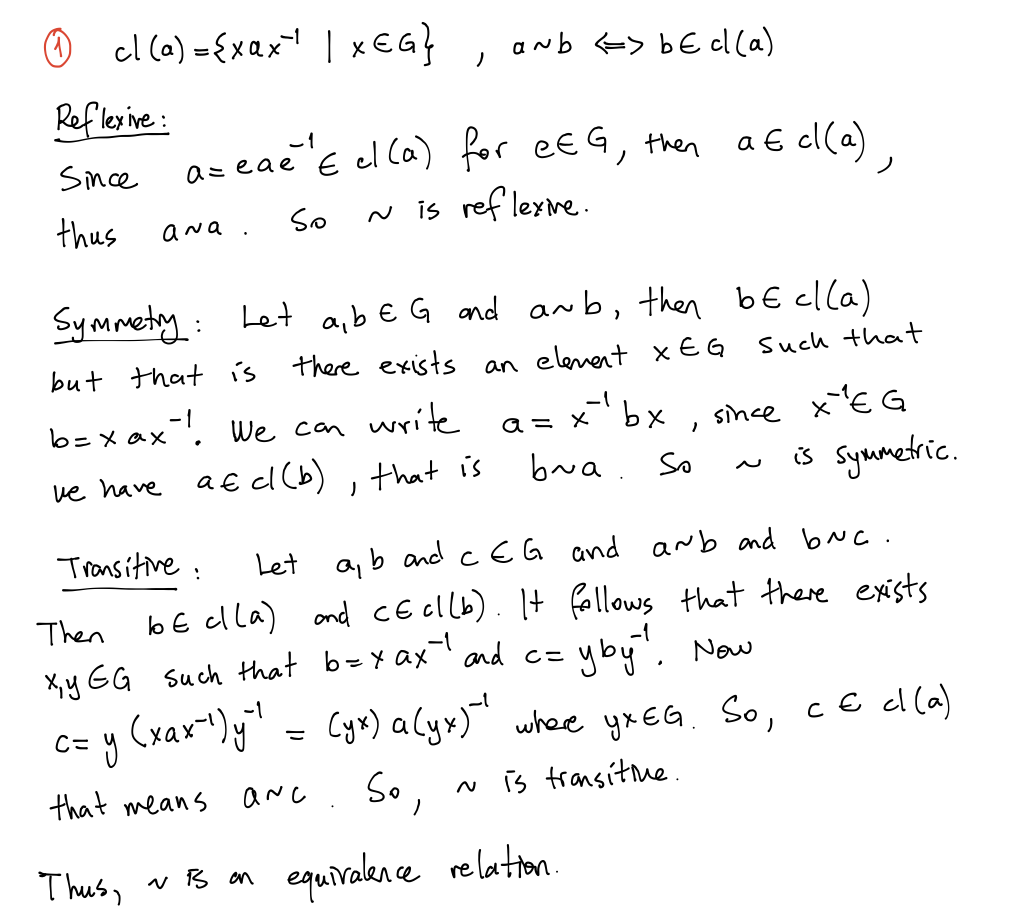 ① cl(a)={xax⁻¹ | x∈G} , a~b <=> b∈cl(a)
Reflexive:
Since a=eae⁻¹∈cl(a) for e∈G, then a∈cl(a),
thus a~a. So ~ is reflexive.
Symmetry: Let a,b∈G and a~b, then b∈cl(a)
but that is there exists an element x∈G such that
b=xax⁻¹. We can write a=x⁻¹bx, since x⁻¹∈G
we have a∈cl(b), that is b~a. So ~ is symmetric.
Transitive: Let a,b and c∈G and a~b and b~c.
Then b∈cl(a) and c∈cl(b). It follows that there exists
x,y∈G such that b=xax⁻¹ and c=yby⁻¹. Now
c=y(xax⁻¹)y⁻¹ = (yx)a(yx)⁻¹ where yx∈G. So, c∈cl(a)
that means a~c. So, ~ is transitive.
Thus, ~ is an equivalence relation.